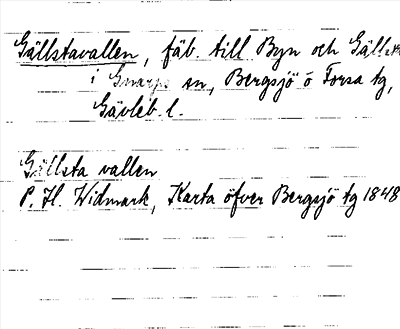 Gällstavallen, fäb. till Byn och Gällsta
i Gnarps sn, Bergsjö o Forsa tg,
Gävleb. l.
Gällsta vallen
P. H. Widmark, Karta öfver Bergsjö tg 1848